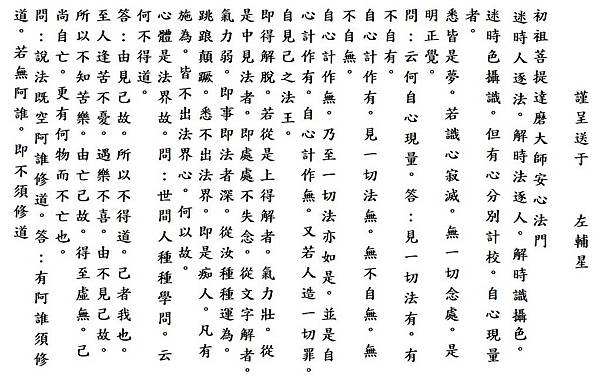 謹呈送于　左輔星
初祖菩提達磨大師安心法門
迷時人逐法。解時法逐人。解時識攝色。
迷時色攝識。但有心分別計校。自心現量
者。
悉皆是夢。若識心寂滅。無一切念處。是
明正覺。
問：云何自心現量。答：見一切法有。有
不自有。
自心計作有。見一切法無。無不自無。無
不自無。
自心計作無。乃至一切法亦如是。並是自
心計作有。自心計作無。又若人造一切罪。
自見己之法王。
即得解脫。若從是上得解者。氣力壯。從
是中見法者。即處處不失念。從文字解者。
氣力弱。即事即法者深。從汝種種運為。
跳踉顛蹶。悉不出法界。即是痴人。凡有
施為。皆不出法界心。何以故。
心體是法界故。問：世間人種種學問。云
何不得道。
答：由見己故。所以不得道。己者我也。
至人逢苦不憂。遇樂不喜。由不見己故。
所以不知苦樂。由亡己故。得至虛無。己
尚自亡。更有何物而不亡也。
問：說法既空阿誰修道。答：有阿誰須修
道。若無阿誰。即不須修道